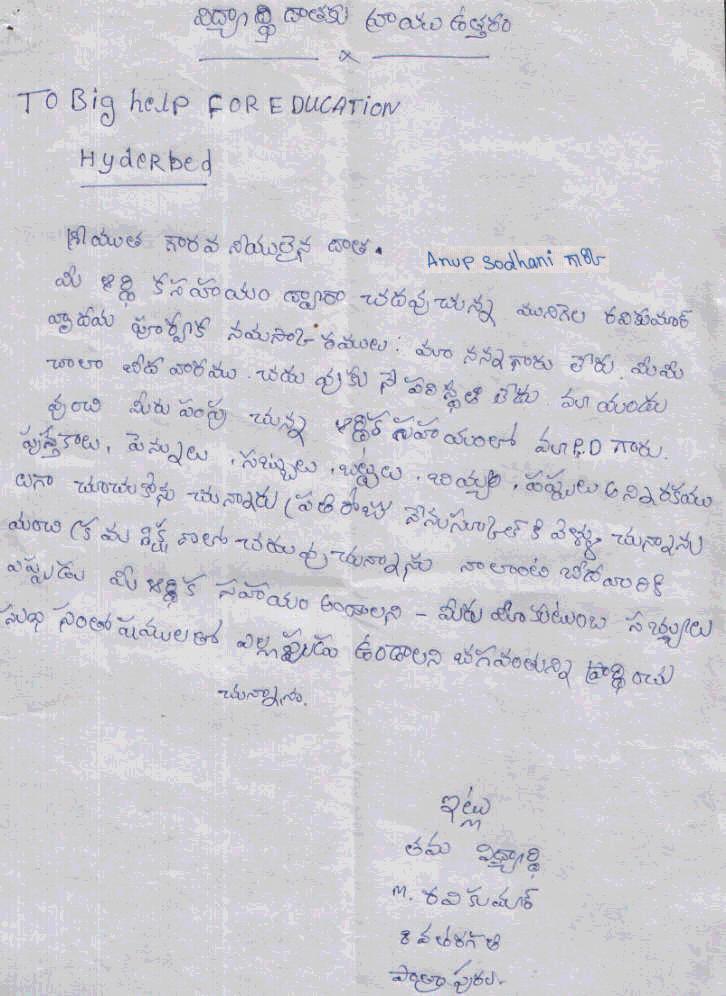 విద్యార్థి దాతకు వ్రాయు ఉత్తరం
x
TO Big help FOR EDUCATION
Hyderbed
శ్రీయుత గౌరవ నీయులైన దాత. Anup Sodhani గారు
మీ ఆర్థి కసహాయం ద్వారా చదవుచున్న మునిగెల రవికుమార్
హృదయ పూర్వక నమస్కా రములు: మా నన్నగారు లేరు. మేము
చాలా బీద వారము. చదు వుకు నే పరిస్థితి లేదు మా యందు
వుంచి మీరు పంపు చున్న ఆర్థిక సహాయంలో మా P.D గారు.
పుస్తకాలు, పెన్నులు, సబ్బులు, బట్టలు, బియ్యం, పప్పులు అన్ని రకము
లుగా చూచుకొను చున్నారు ప్రతి రోజు నేను స్కూల్ కి వెళ్ళు చున్నాను
మంచి క్రమ శిక్ష ణలో చదువు చున్నాను నాలాంటి బీదవారికి
ఎప్పుడు మీ ఆర్థిక సహాయం ఉండాలని - మీరు మీ కుటుంబ సభ్యులు
సుఖ సంతోషములతో ఎల్లప్పుడు ఉండాలని భగవంతున్ని ప్రార్థించు
చున్నాను.
ఇట్లు
తమ విద్యార్థి
M. రవి కుమార్